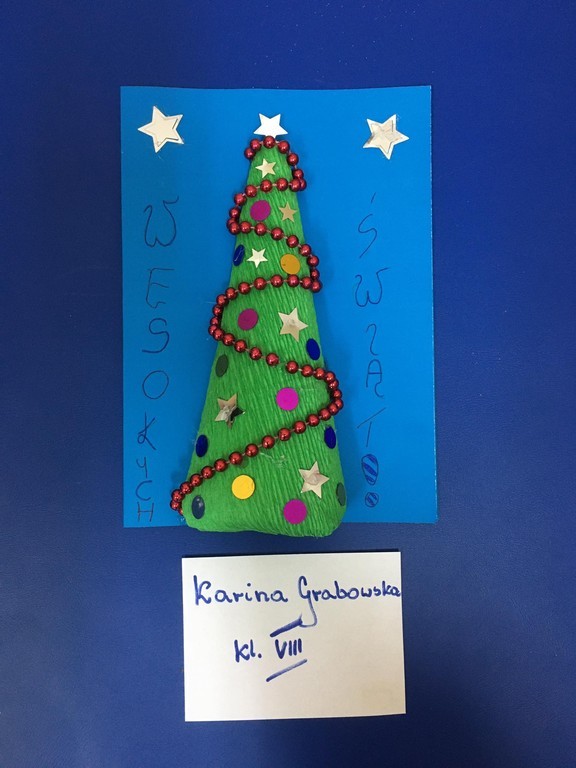 WESOŁYCH
ŚWIĄT!
Karina Grabowska
kl. VIII